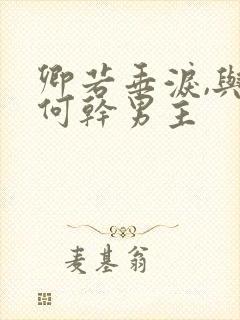 卿若垂淚,與
何幹男主
麦基翁